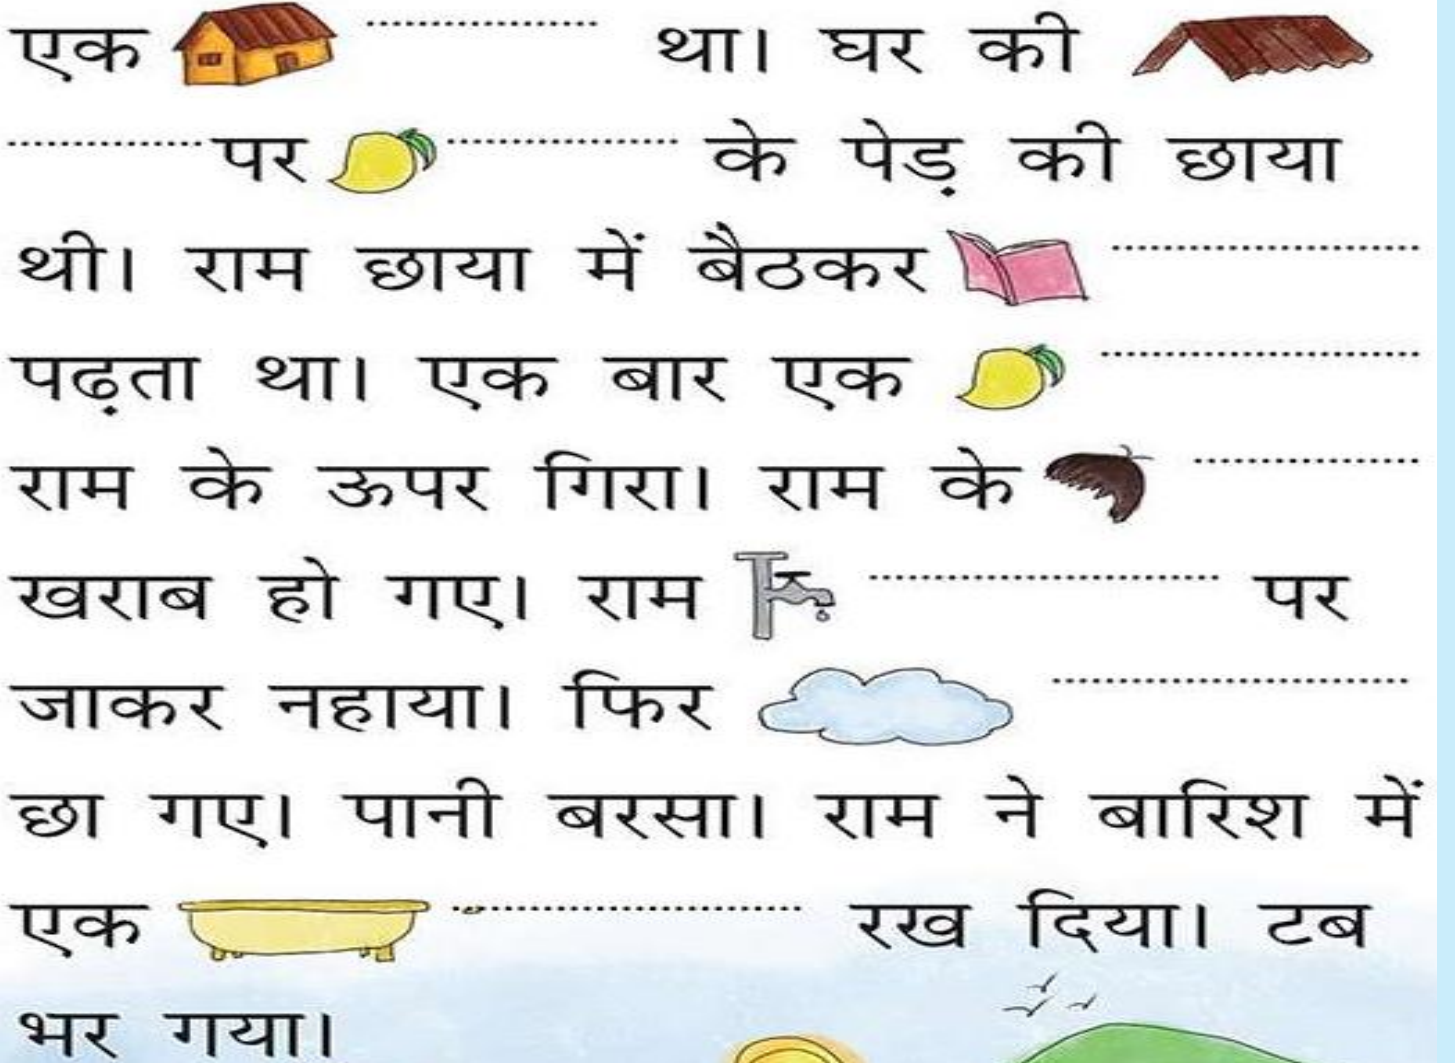 एक .......... था। घर की
.......... पर .......... के पेड़ की छाया
थी। राम छाया में बैठकर ..........
पढ़ता था। एक बार एक ..........
राम के ऊपर गिरा। राम के ..........
खराब हो गए। राम .......... पर
जाकर नहाया। फिर ..........
छा गए। पानी बरसा। राम ने बारिश में
एक .......... रख दिया। टब
भर गया।